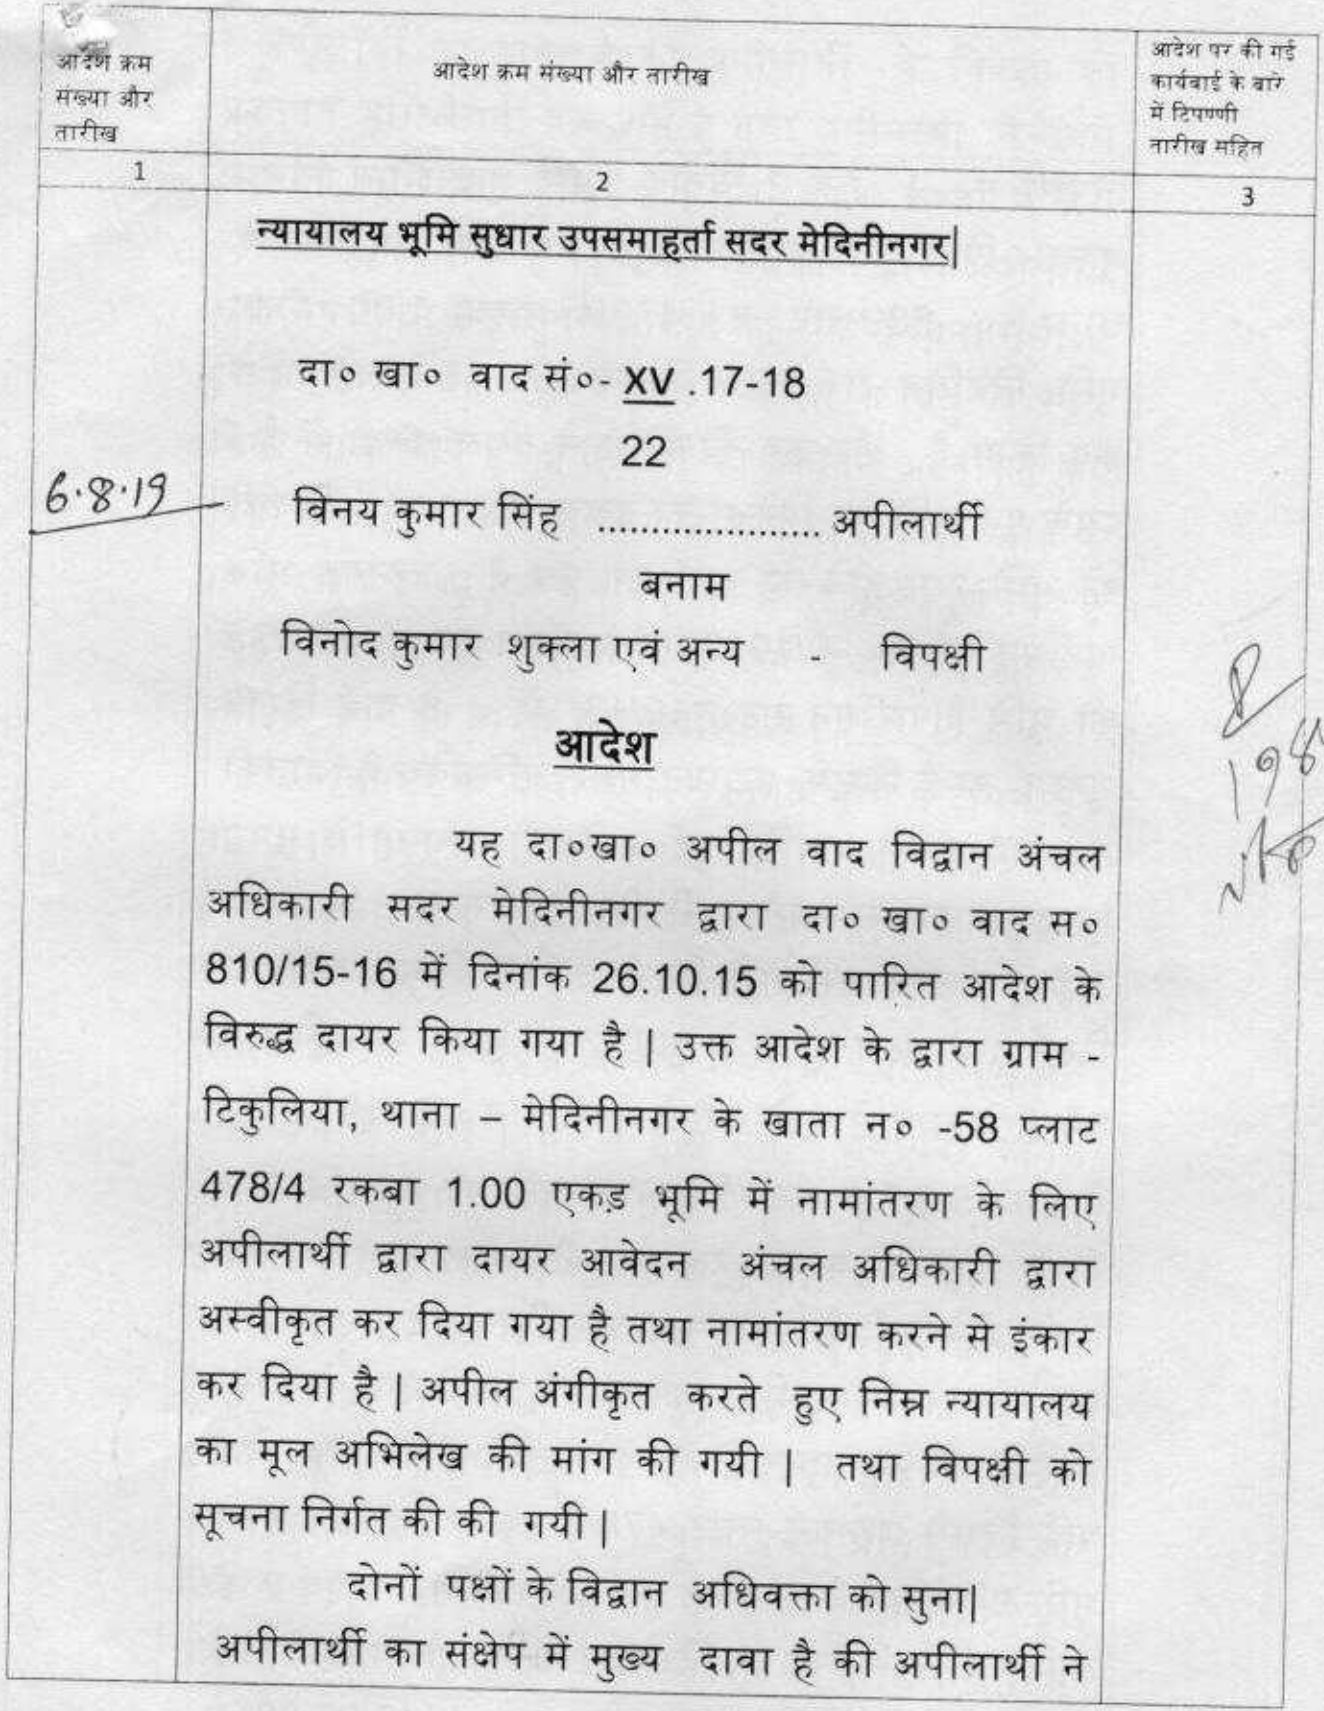 आदेश क्रम
संख्या और
तारीख
आदेश क्रम संख्या और तारीख
आदेश पर की गई
कार्यवाई के बारे
में टिपण्णी
तारीख सहित
1
2
3
न्यायालय भूमि सुधार उपसमाहर्ता सदर मेदिनीनगर|
दा० खा० वाद सं०- XV .17-18
22
6.8.19
विनय कुमार सिंह ..................... अपीलार्थी
बनाम
विनोद कुमार शुक्ला एवं अन्य - विपक्षी
आदेश
यह दा०खा० अपील वाद विद्वान अंचल
अधिकारी सदर मेदिनीनगर द्वारा दा० खा० वाद स०
810/15-16 में दिनांक 26.10.15 को पारित आदेश के
विरुद्ध दायर किया गया है | उक्त आदेश के द्वारा ग्राम -
टिकुलिया, थाना – मेदिनीनगर के खाता न० -58 प्लाट
478/4 रकबा 1.00 एकड़ भूमि में नामांतरण के लिए
अपीलार्थी द्वारा दायर आवेदन अंचल अधिकारी द्वारा
अस्वीकृत कर दिया गया है तथा नामांतरण करने से इंकार
कर दिया है | अपील अंगीकृत करते हुए निम्न न्यायालय
का मूल अभिलेख की मांग की गयी | तथा विपक्षी को
सूचना निर्गत की की गयी |
दोनों पक्षों के विद्वान अधिवक्ता को सुना|
अपीलार्थी का संक्षेप में मुख्य दावा है की अपीलार्थी ने